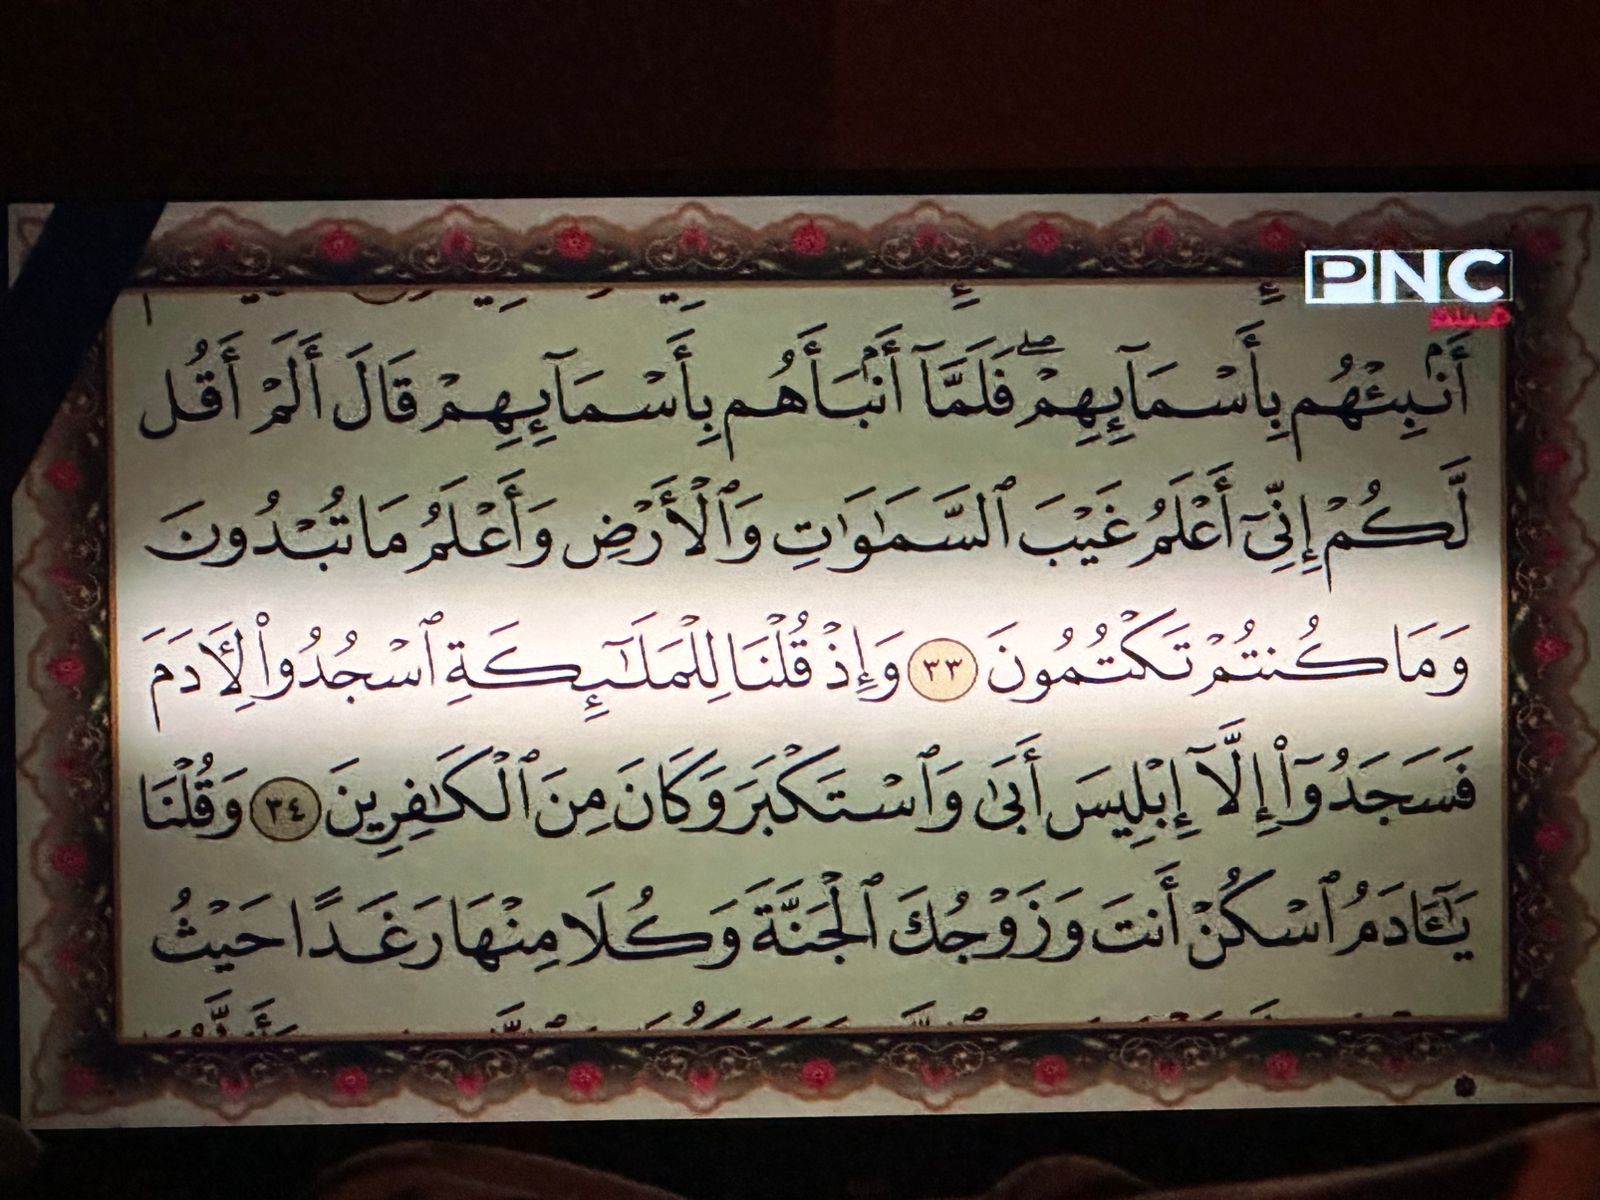 PNC
أَنۢبِئْهُم بِأَسْمَآئِهِمْ ۖ فَلَمَّآ أَنۢبَأَهُم بِأَسْمَآئِهِمْ قَالَ أَلَمْ أَقُل
لَّكُمْ إِنِّىٓ أَعْلَمُ غَيْبَ ٱلسَّمَٰوَٰتِ وَٱلْأَرْضِ وَأَعْلَمُ مَا تُبْدُونَ
وَمَا كُنتُمْ تَكْتُمُونَ ٣٣ وَإِذْ قُلْنَا لِلْمَلَٰٓئِكَةِ ٱسْجُدُوا۟ لِـَٔادَمَ
فَسَجَدُوٓا۟ إِلَّآ إِبْلِيسَ أَبَىٰ وَٱسْتَكْبَرَ وَكَانَ مِنَ ٱلْكَٰفِرِينَ ٣٤ وَقُلْنَا
يَٰٓـَٔادَمُ ٱسْكُنْ أَنتَ وَزَوْجُكَ ٱلْجَنَّةَ وَكُلَا مِنْهَا رَغَدًا حَيْثُ